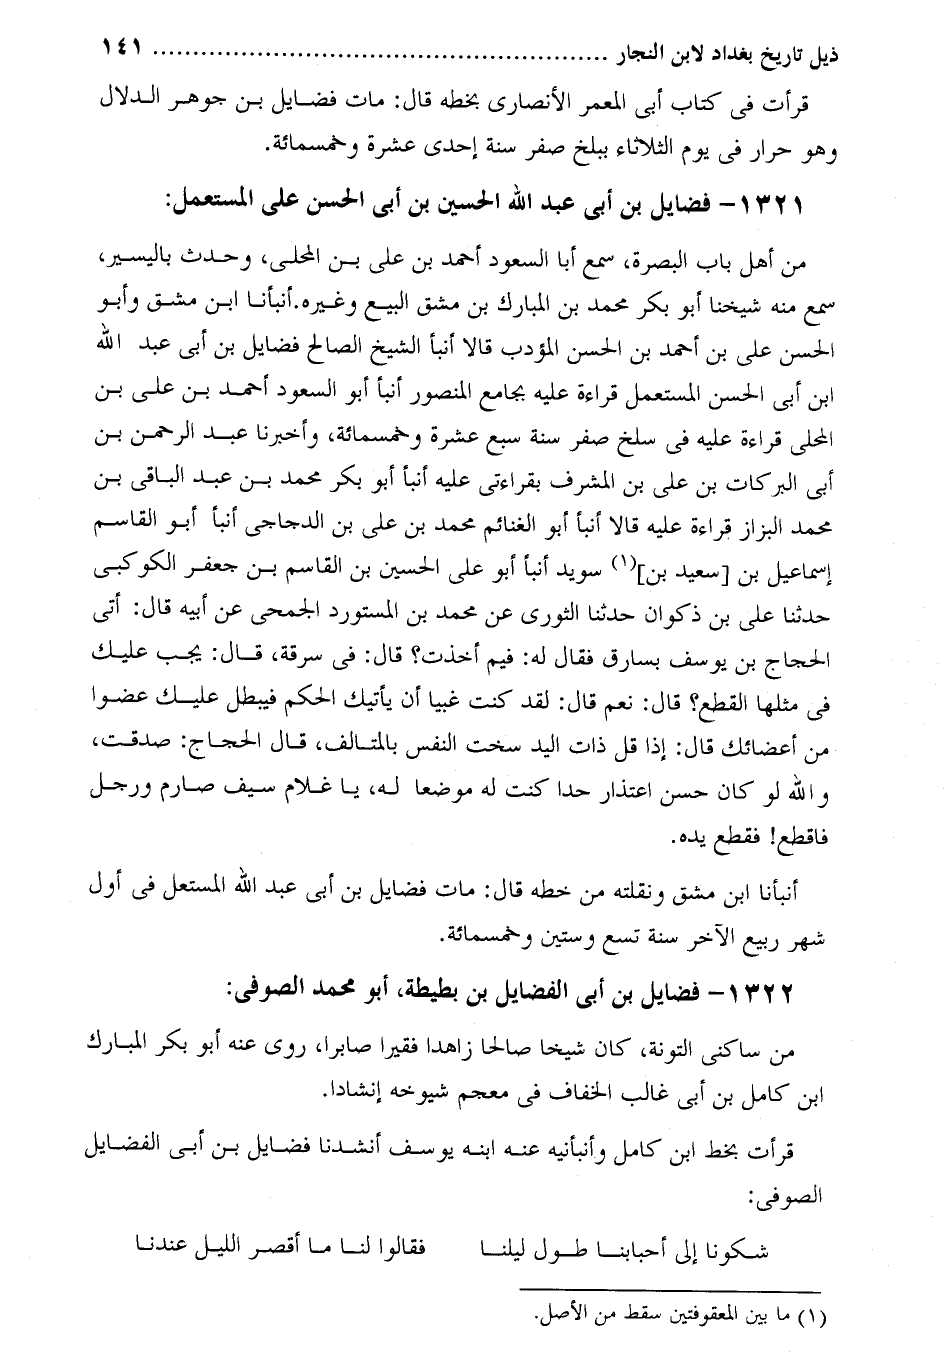 ذيل تاريخ بغداد لابن النجار ........................................................ ١٤١
قرأت فى كتاب أبى المعمر الأنصارى بخطه قال: مات فضايل بن جوهر الدلال
وهو حرار فى يوم الثلاثاء ببلخ صفر سنة إحدى عشرة وخمسمائة.
١٣٢١- فضايل بن أبى عبد الله الحسين بن أبى الحسن على المستعمل:
من أهل باب البصرة، سمع أبا السعود أحمد بن على بن المحلى، وحدث باليسير،
سمع منه شيخنا أبو بكر محمد بن المبارك بن مشق البيع وغيره.أنبأنا ابن مشق وأبو
الحسن على بن أحمد بن الحسن المؤدب قالا أنبأ الشيخ الصالح فضايل بن أبى عبد الله
ابن أبى الحسن المستعمل قراءة عليه بجامع المنصور أنبأ أبو السعود أحمد بن على بن
المحلى قراءة عليه فى سلخ صفر سنة سبع عشرة وخمسمائة، وأخبرنا عبد الرحمن بن
أبى البركات بن على بن المشرف بقراءتى عليه أنبأ أبو بكر محمد بن عبد الباقى بن
محمد البزاز قراءة عليه قالا أنبأ أبو الغنائم محمد بن على بن الدجاجى أنبأ أبو القاسم
إسماعيل بن [سعيد بن](١) سويد أنبأ أبو على الحسين بن القاسم بن جعفر الكوكبى
حدثنا على بن ذكوان حدثنا الثورى عن محمد بن المستورد الجمحى عن أبيه قال: أتى
الحجاج بن يوسف بسارق فقال له: فيم أخذت؟ قال: فى سرقة، قال: يجب عليك
فى مثلها القطع؟ قال: نعم قال: لقد كنت غبيا أن يأتيك الحكم فيبطل عليك عضوا
من أعضائك قال: إذا قل ذات اليد سخت النفس بالمتالف، قال الحجاج: صدقت،
والله لو كان حسن اعتذار حدا كنت له موضعا له، يا غلام سيف صارم ورجل
فاقطع! فقطع يده.
أنبأنا ابن مشق ونقلته من خطه قال: مات فضايل بن أبى عبد الله المستعل فى أول
شهر ربيع الآخر سنة تسع وستين وخمسمائة.
١٣٢٢- فضايل بن أبى الفضايل بن بطيطة، أبو محمد الصوفى:
من ساكنى التونة، كان شيخا صالحا زاهدا فقيرا صابرا، روى عنه أبو بكر المبارك
ابن كامل بن أبى غالب الخفاف فى معجم شيوخه إنشادا.
قرأت بخط ابن كامل وأنبأنيه عنه ابنه يوسف أنشدنا فضايل بن أبى الفضايل
الصوفى:
شكونا إلى أحبابنا طول ليلنا فقالوا لنا ما أقصر الليل عندنا
(١) ما بين المعقوفتين سقط من الأصل.